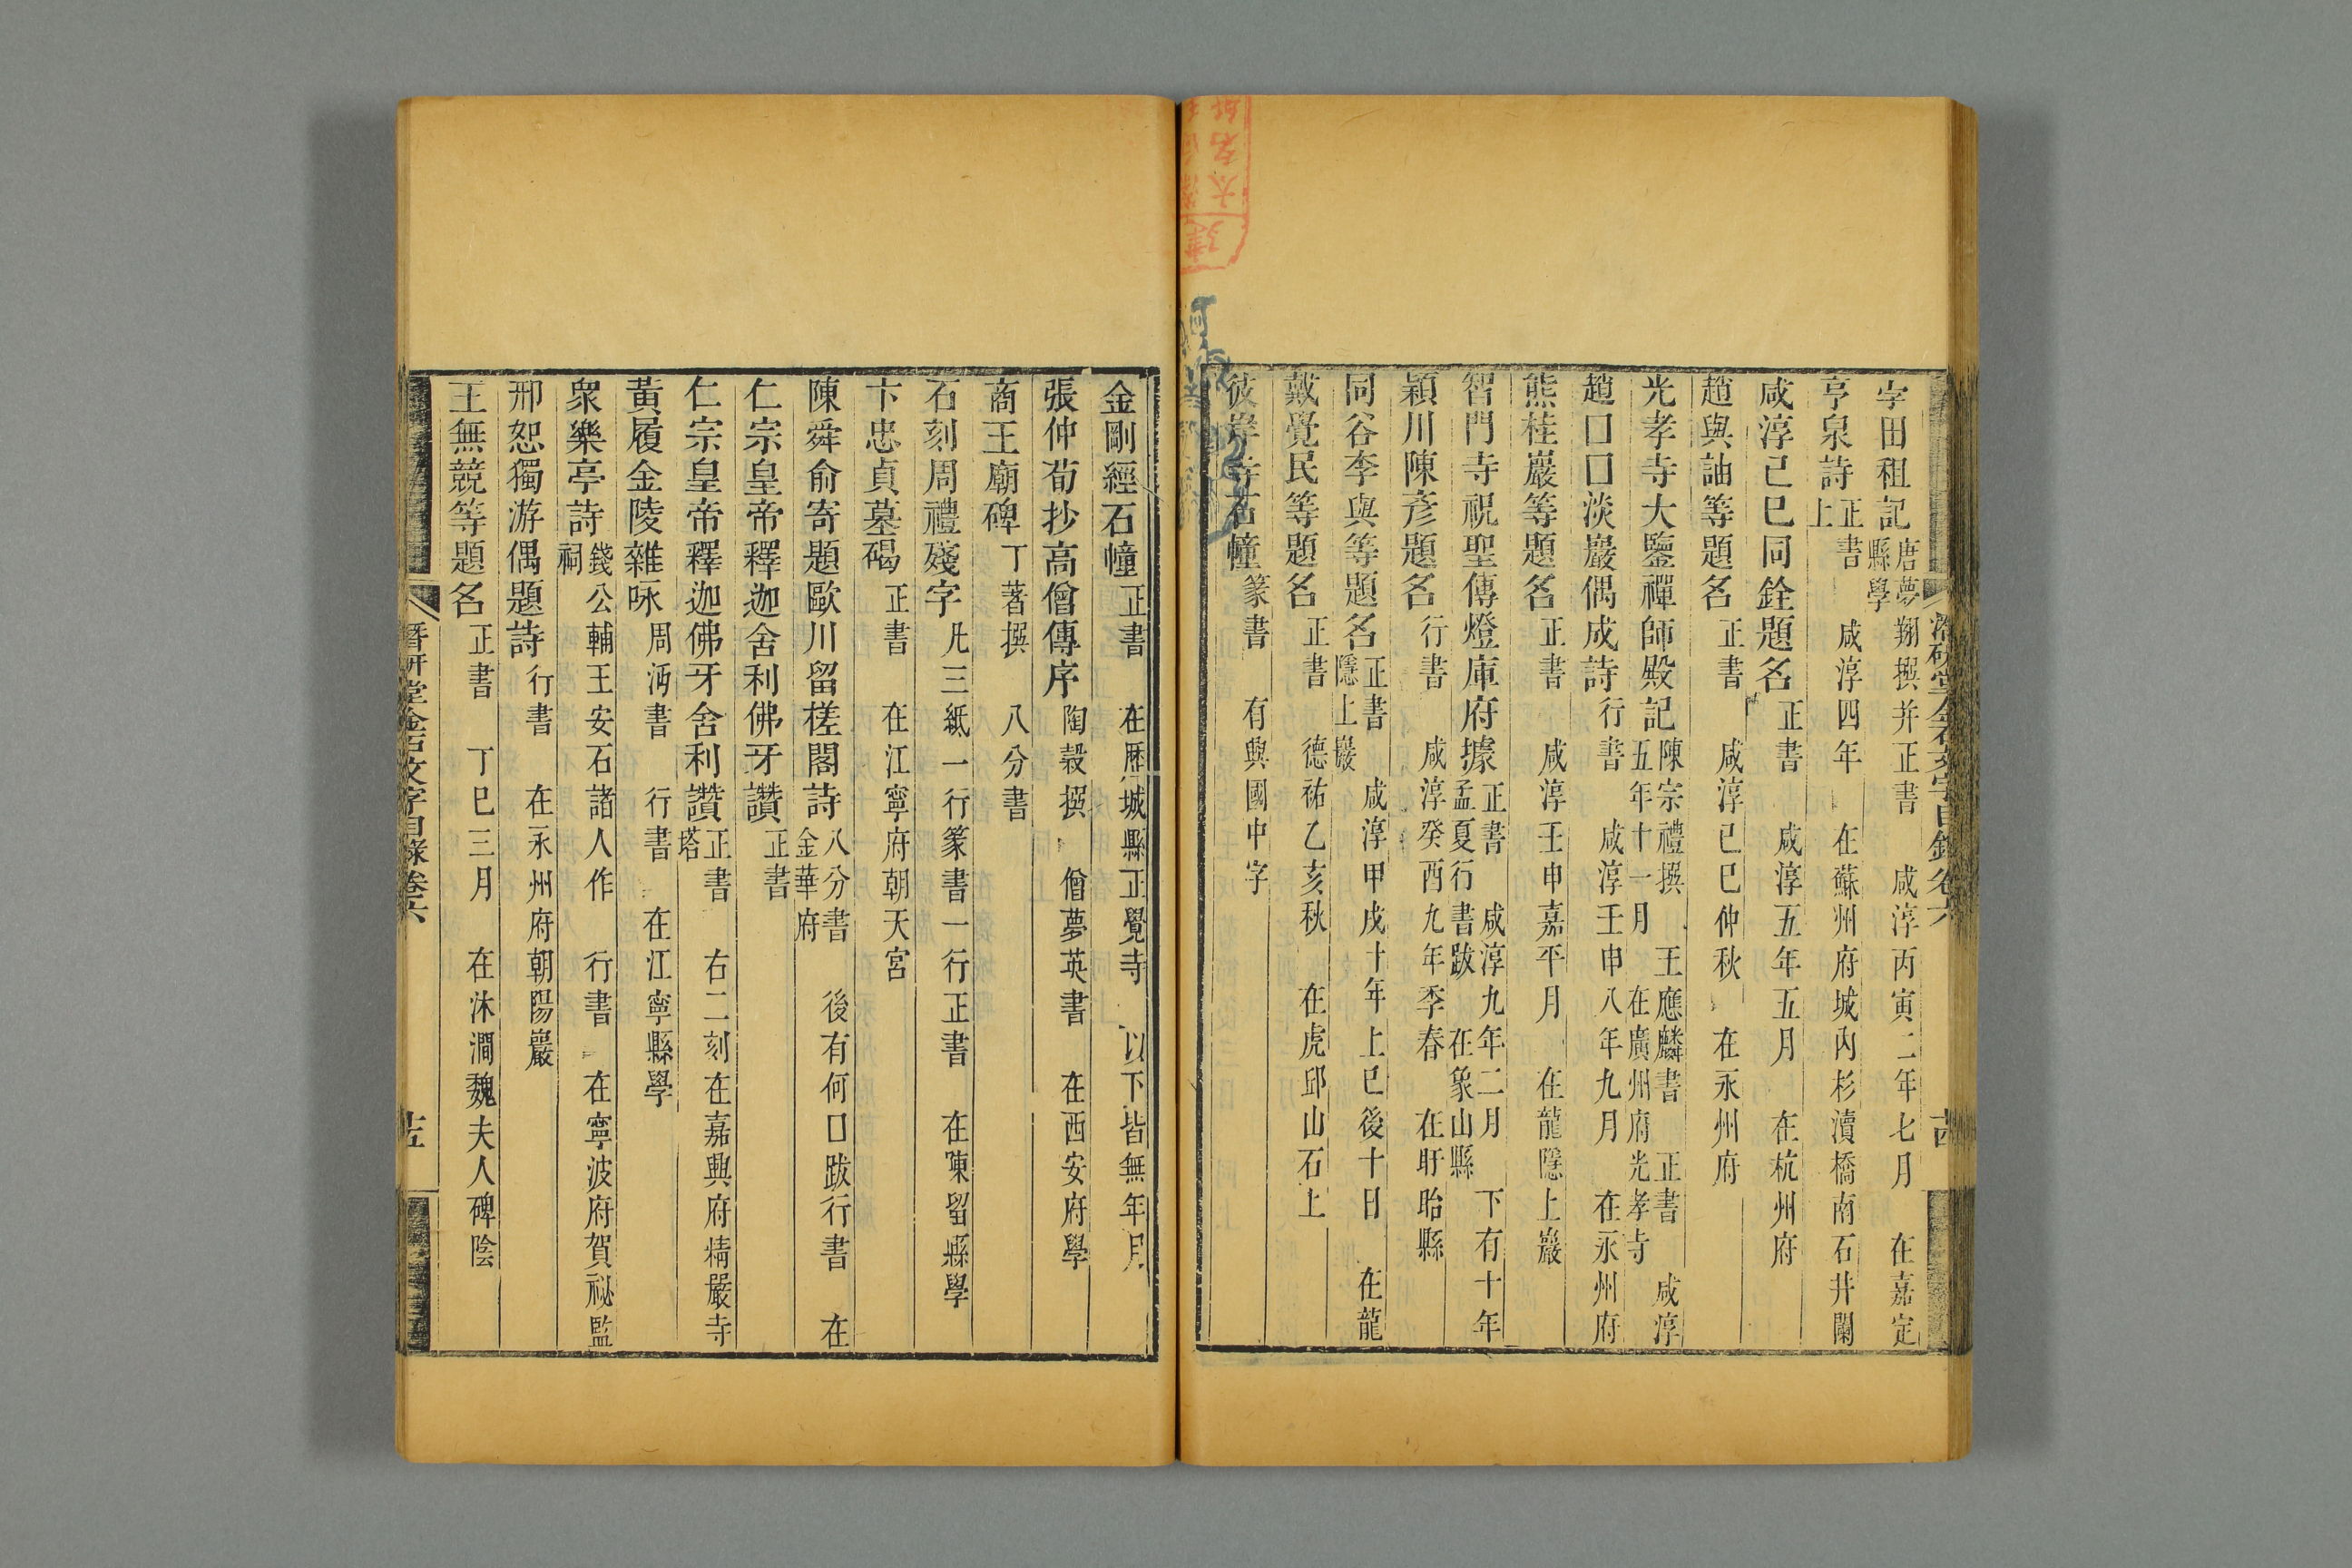 字田租記 唐夢翔撰并正書 咸淳丙寅二年七月 在嘉定縣學
亨泉詩 正書 咸淳四年 在蘇州府城內杉瀆橋南石井闌上
咸淳己巳同銓題名 正書 咸淳五年五月 在杭州府
趙與詘等題名 正書 咸淳己巳仲秋 在永州府
光孝寺大鑒禪師殿記 陳宗禮撰 王應麟書 正書 咸淳五年十一月 在廣州府光孝寺
趙囗囗淡巖偶成詩 行書 咸淳壬申八年九月 在永州府
熊桂巖等題名 正書 咸淳壬申嘉平月 在龍隱上巖
智門寺祝聖傳燈庫府據 正書 咸淳九年二月 下有十年孟夏行書跋 在象山縣
穎川陳彥題名 行書 咸淳癸酉九年季春 在盱眙縣
同谷李與等題名 正書 咸淳甲戌十年上巳後十日 在龍隱上巖
戴覺民等題名 正書 德祐乙亥秋 在虎邱山石上
彼岸寺石幢 篆書 有與國中字
金剛經石幢 正書 在歷城縣正覺寺 以下皆無年月
張仲荀抄高僧傳序 陶穀撰 僧夢英書 在西安府學
商王廟碑 丁著撰 八分書
石刻周禮殘字 凡三紙一行篆書一行正書 在陳留縣學
卞忠貞墓碣 正書 在江寧府朝天宮
陳舜俞寄題歐川留槎閣詩 八分書 後有何囗跋行書 在金華府
仁宗皇帝釋迦舍利佛牙讚 正書
仁宗皇帝釋迦佛牙舍利讚 正書 右二刻在嘉興府精嚴寺塔
黃履金陵雜咏 周沔書 行書 在江寧縣學
衆樂亭詩 錢公輔王安石諸人作 行書 在寧波府賀祕監祠
邢恕獨游偶題詩 行書 在永州府朝陽巖
王無競等題名 正書 丁巳三月 在沐澗魏夫人碑陰
潛研堂金石文字目錄卷六 十五